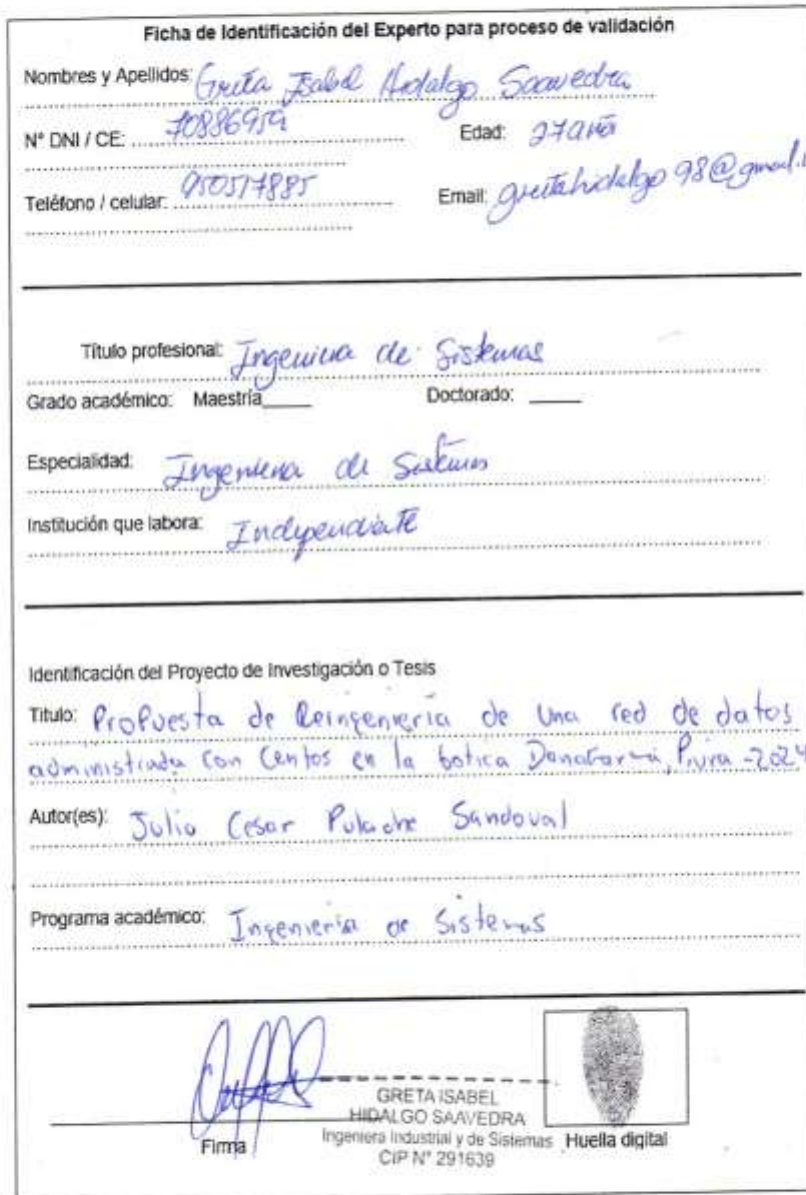 Ficha de Identificación del Experto para proceso de validación
Nombres y Apellidos: Greta Isabel Hidalgo Saavedra
N° DNI / CE: 70886959 Edad: 27 años
Teléfono / celular: 950517885 Email: gretahidalgo98@gmail.
Título profesional: Ingeniera de Sistemas
Grado académico: Maestría_____ Doctorado: _____
Especialidad: Ingeniera de Sistemas
Institución que labora: Independiente
Identificación del Proyecto de Investigación o Tesis
Titulo: Propuesta de Reingeniería de una red de datos
administrada con Centos en la botica Donafarma, Piura -2024
Autor(es): Julio Cesar Pulache Sandoval
Programa académico: Ingeniería de Sistemas
GRETA ISABEL
HIDALGO SAAVEDRA
Ingeniera Industrial y de Sistemas
CIP N° 291639
Firma Huella digital